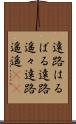 遠路はる
ばる遠路
遙々遠路
遥遥《